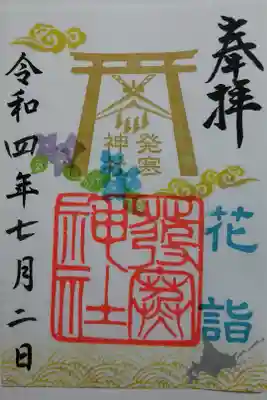 奉拝
発寒
神社
花詣
發寒
神社
令和四年七月二日